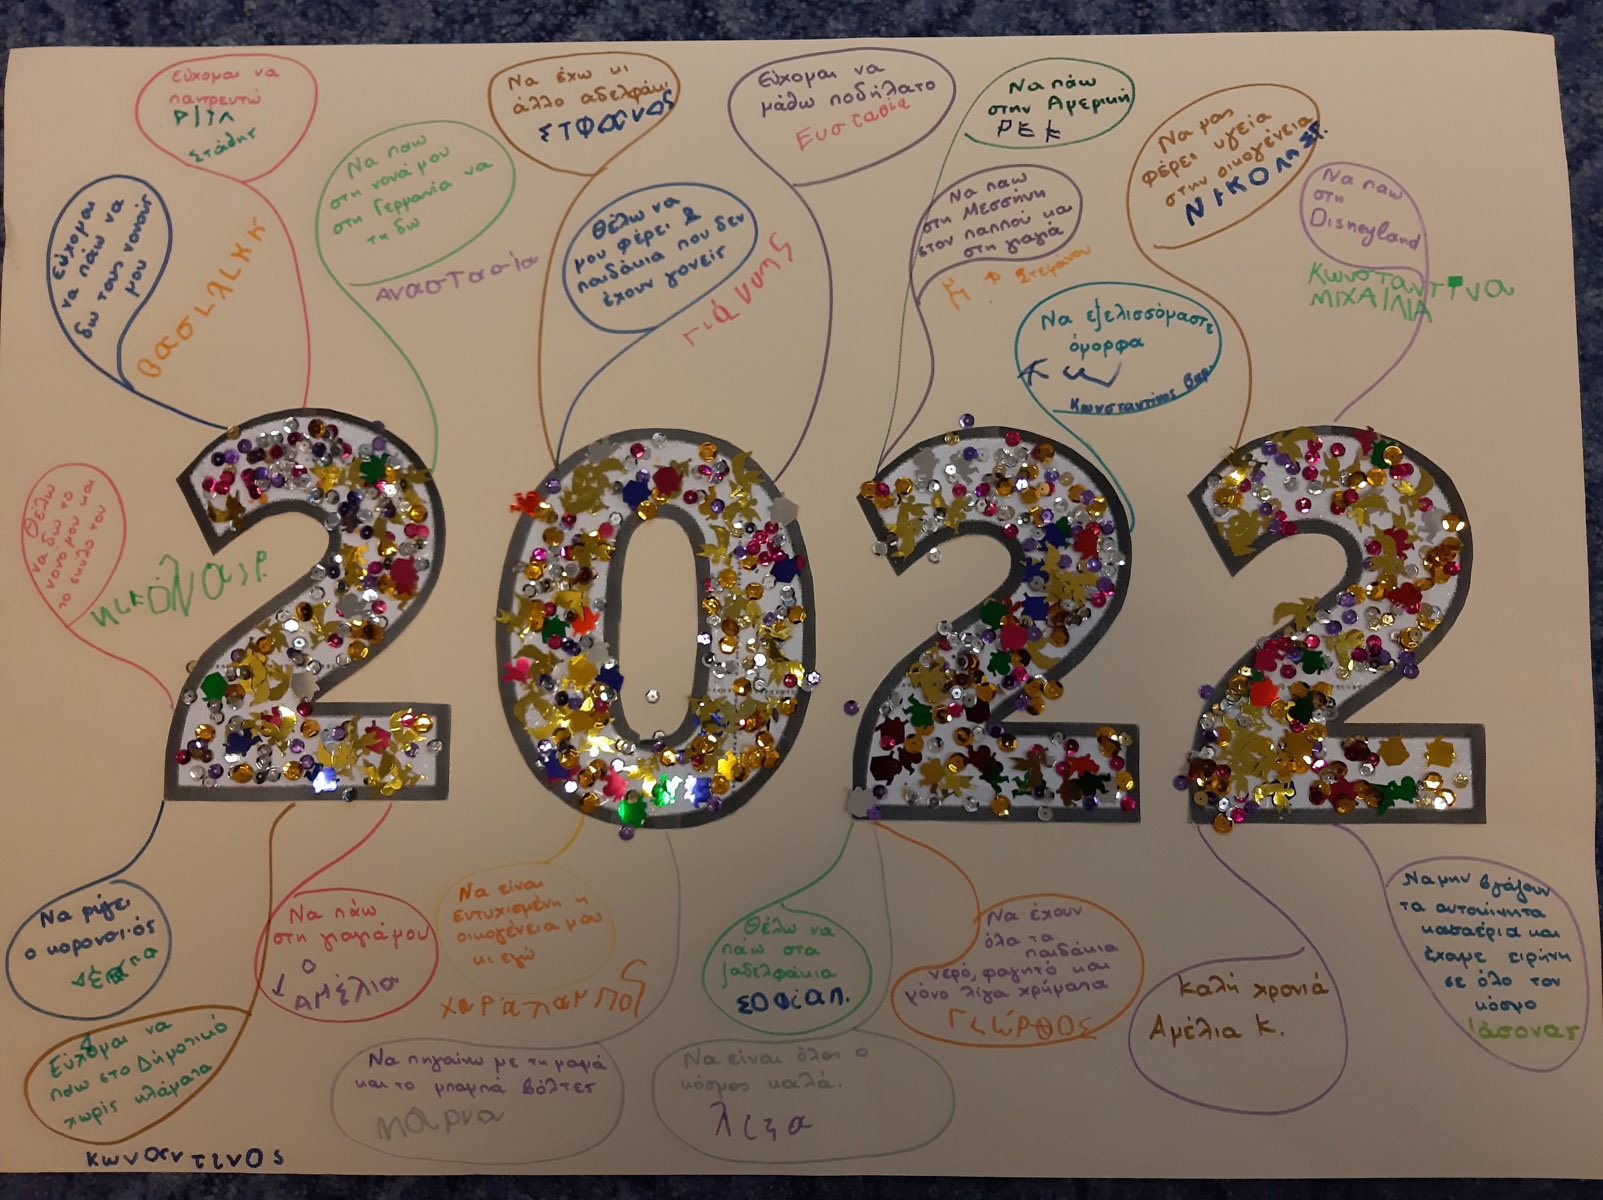 Εύχομαι να
παντρευτώ
Στάθης
Εύχομαι
να πάω να
δω τους νονούς
μου
ΒασιλικΗ
Να πάω
στη νονά μου
στη Γερμανία να
τη δω
ΑναστΑσία
Να έχω κι
άλλο αδελφάκι
ΣΤΦΑΝΟΣ
Θέλω να
μου φέρει 2
παιδάκια που δεν
έχουν γονείς
Γιάννης
Εύχομαι να
μάθω ποδήλατο
Ευσταθία
Να πάω
στην Αμερική
Να πάω
στη Μεσσήνη
στον παππού και
στη γιαγιά
Στεφάνου
Να εξελισσόμαστε
όμορφα
Κωνσταντίνος Βαρ.
Να μας
φέρει υγεία
στην οικογένεια
Να πάω
στη
Disneyland
ΚωνσταντΙνα
ΜΙΧΑΙΛΙΑ
Θέλω
να δω το
νονό μου και
το σκύλο του
2022
Να φύγει
ο κορονοϊός
Εύχομαι να
πάω στο Δημοτικό
χωρίς κλάματα
κωνσαντινος
Να πάω
στη γιαγιά μου
ΑΜέλια
Να είναι
ευτυχισμένη η
οικογένεια μου
κι εγώ
χαράλαμπος
Να πηγαίνω με τη μαμά
και το μπαμπά βόλτες
Μαρνα
Θέλω να
πάω στα
ξαδελφάκια
ΣΟΦίΑΠ.
Να είναι όλος ο
κόσμος καλά.
λιζα
Να έχουν
όλα τα
παιδάκια
νερό, φαγητό και
μόνο λίγα χρήματα
Γιώργος
Καλή χρονιά
Αμέλια Κ.
Να μην βγάζουν
τα αυτοκίνητα
καυσαέρια και
έχουμε ειρήνη
σε όλο τον
κόσμο
Ιάσονας